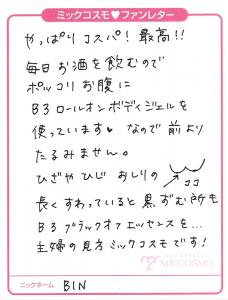 ミックコスモ♥ファンレター
やっぱりコスパ！最高!!
毎日お酒を飲むので
ポッコリお腹に
B3ロールオンボディジェルを
使っています♥なので前より
たるみません。
ひざやひじ おしりの
ココ
長くすわっていると黒ずむ所も
B3ブラックオフエッセンスを…
主婦の見方ミックコスモです！
MICCOSMO
ニックネーム BIN